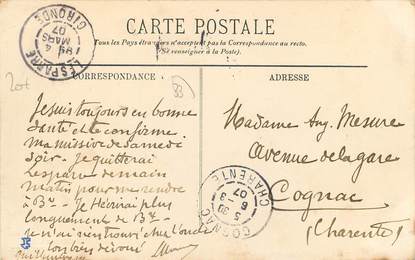 CARTE POSTALE
Tous les Pays étrangers n'acceptent pas la Correspondance au recto.
(Se renseigner à la Poste).
CORRESPONDANCE
ADRESSE
LESPARRE
GIRONDE
4
MARS
07
33
Je suis toujours en bonne
santé et te confirme
ma missive de samedi
soir. Je quitterai
Lesparre demain
matin pour me rendre
à Bx. Je t'écrirai plus
longuement de Bx
Je
chez l'oncle
Ton bien dévoué
Madame Aug. Mesure
Avenue de la gare
Cognac
(Charente)
COGNAC
CHARENTE
5 30
6 3
07